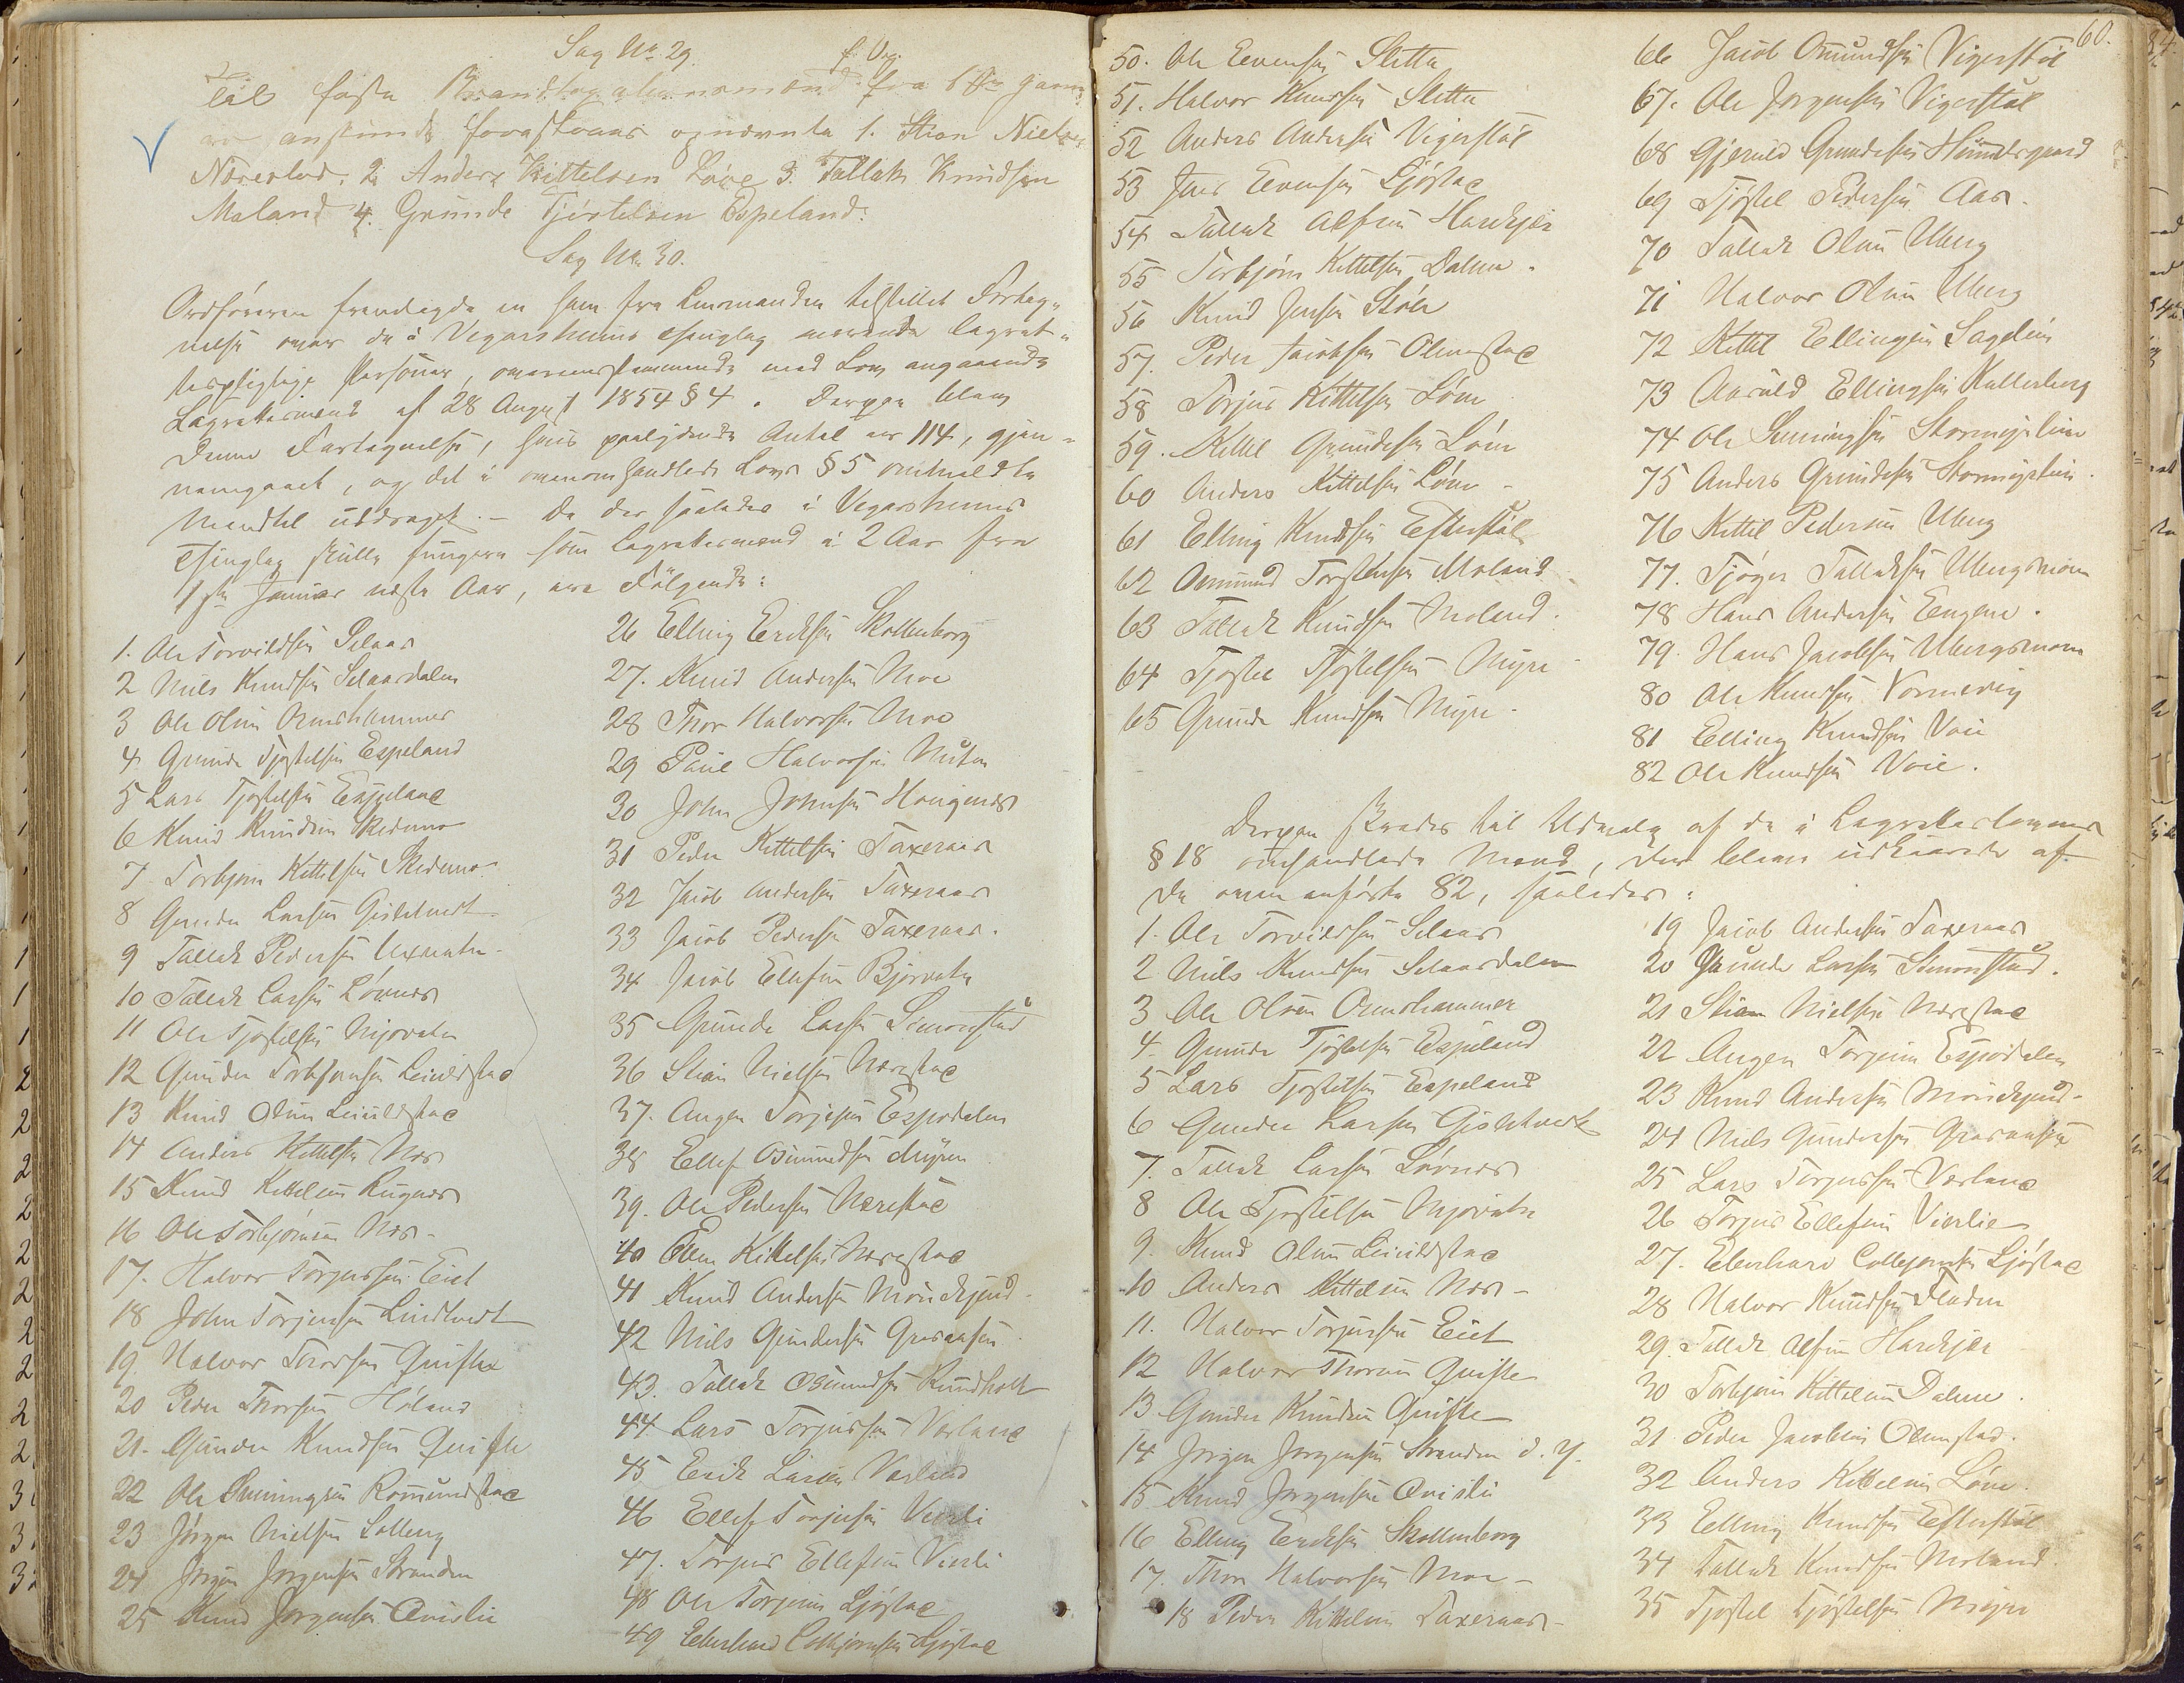 Sag No. 29.
f. Veg.
Til faste Brandtagationsmænd fra 1ste Janu
anstimede foreslaaes opnævnte 1. Stian Nielsen
Nærestad. 2. Anders Kittelsen Løve 3. Tallak Knudsen
Moland 4. Grunde Tjøstelsen Espeland.
Sag No. 30.
Ordføreren fremlagde en ham fra Lensmanden tilstillet Forteg-
nelse over de i Vegarsheiens Thinglag værende lagret-
tespligtige Personer, overensstemmende med Lov angaaende
Lagrettesmænd af 28 August 1854 § 4. Derpaa blev
denne Fortegnelse, hvis paalydende Antal er 114, gjen-
nemgaaet, og det i ovenomhandlede Lovs § 5 omhandlede
Mandtal uddraget. – De der saaledes i Vegarsheiens
Thinglag skulle fungere som Lagrettesmænd i 2 Aar fra
1ste Januar næste Aar, ere Følgende:
1. Ole Torvildsen Selaas
2 Niels Knudsen Selaasdalen
3 Ole Olsen Ormshammer
4 Grunde Tjøstelsen Espeland
5 Lars Tjøstelsen Espeland
6 Knud Knudsen Skidmo
7 Torbjørn Kittelsen Skidmo
8 Gunder Larsen Gislehvedt
9 Tallak Pedersen Uexvatn
10 Tallak Larsen Løvnes
11 Ole Tjøstelsen Mjovatn
12 Gunder Torbjørnsen Leiuldstad
13 Knud Olsen Leiuldstad
14 Anders Kittelsen Næs
15 Knud Kittelsen Rugnes
16 Ole Torbjørnsen Næs
17. Halvor Torjussen Eiet
18 John Torjussen Lindtvedt
19. Halvor Thorsen Qviste
20 Peder Thorsen Høland
21. Gunder Knudsen Qviste
22 Ole Svenningsen Romundstad
23 Jørgen Nielsen Solberg
24 Jørgen Jørgensen Stranden
25 Knud Jørgensen Qvislie
26 Elling Eriksen Skollenborg
27. Knud Andersen Moe
28 Thor Halvorsen Moe
29 Paul Halvorsen Myten
30 John Johnsen Hougenes
31 Peder Kittelsen Taxeraas
32 Jacob Andersen Taxeraas
33 Jacob Pedersen Taxeraas.
34 Jacob Ellefsen Bjorvatn
35 Grunde Larsen Simonstad
36 Stian Nielsen Nærestad
37. Augen Torjesen Espedalen
38 Ellef Osmundsen Myren
39. Ole Pedersen Nærestad
40 Even Kittelsen Nærestad
41 Knud Andersen Mønekjend
42 Niels Gundersen Graaansen
43. Tallak Osmundsen Rundholt
44 Lars Torjussen Værland
45 Erik Larsen Værland
46 Ellef Torjusen Vierli
47. Torjus Ellefsen Vierli
48 Ole Torjusen Ljøstad
49 Eberhard Colbjørnsen Ljøstad
60.
50. Ole Evensen Sletta
51. Halvor Knudsen Sletta
52 Anders Andersen Vigerstøl
53 Jens Evensen Ljøstad
54 Tallak Alfsen Haukjær
55 Torbjørn Kittelsen Dalene.
56 Knud Jensen Støle
57. Peder Jacobsen Olimstad
58 Torjus Kittelsen Løve
59. Kittel Grundesen Løve
60 Anders Kittelsen Løve
61 Elling Knudsen Efterstøl
62 Ommund Torstensen Moland
63 Tallak Knudsen Moland.
64 Tjøstel Tjøstelsen Myre
65 Grunde Knudsen Myre.
66 Jacob Omundsen Vigerstøl
67. Ole Jørgensen Vigerstøl
68 Gjeruld Grundesen Hunsdrgaard
69 Tjøstel Pedersen Aas.
70 Tallak Olsen Uberg
71 Halvor Olsen Uberg
72 Kittel Ellingsen Sagelien
73 Aasuld Ellingsen Kallerberg
74 Ole Svenningsen Stormyrlien
75 Anders Grundesen Stormyrlien.
76 Kittil Pedersen Uberg
77. Tjøger Tallaksen Ubergsmoen
78 Hans Andersen Engene.
79. Hans Jacobsen Ubergsmoen
80 Ole Knudsen Vormevig
81 Elling Knudsen Voie
82 Ole Knudsen Voie.
Derpaa skredes til Udvalg af de i Lagretteslovens
§ 18 omhandlede Mænd, der bleve udkaarede af
de ovenanførte 82, saaledes:
1. Ole Torvildsen Selaas
2 Niels Knudsen Selaasdalen
3 Ole Olsen Ormshammer
4. Grunde Tjøstelsen Espeland
5 Lars Tjøstelsen Espeland
6 Gunder Larsen Gislehvedt
7. Tallak Larsen Løvnes
8 Ole Tjøstelsen Mjovatn
9. Knud Olsen Leiuldstad
10 Anders Kittelsen Næs –
11. Halvor Torjussen Eiet
12 Halvor Thorsen Qviste
13 Gunder Knudsen Qviste
14 Jørgen Jørgensen Stranden d. y.
15 Knud Jørgensen Qvisli
16 Elling Eriksen Skollenborg
17. Thor Halvorsen Moe –
18 Peder Kittelsen Taxeraas –
19 Jacob Andersen Taxeraas
20 Grunde Larsen Simonstad.
21 Stian Nielsen Nærestad
22 Augen Torjesen Espedalen
23 Knud Andersen Mønekjend –
24 Niels Gundersen Graaansen
25 Lars Torjussen Værland
26 Torjus Ellefsen Vierlie
27. Eberhard Colbjørnsen Ljøstad
28 Halvor Knudsen Fladen
29. Tallak Alfsen Haukjær
30 Torbjørn Kittelsen Dalene.
31 Peder Jacobsen Olimstad.
32 Anders Kittelsen Løve.
33 Elling Knudsen Efterstøl
34 Tallak Knudsen Moland.
35 Tjøstel Tjøstelsen Myre